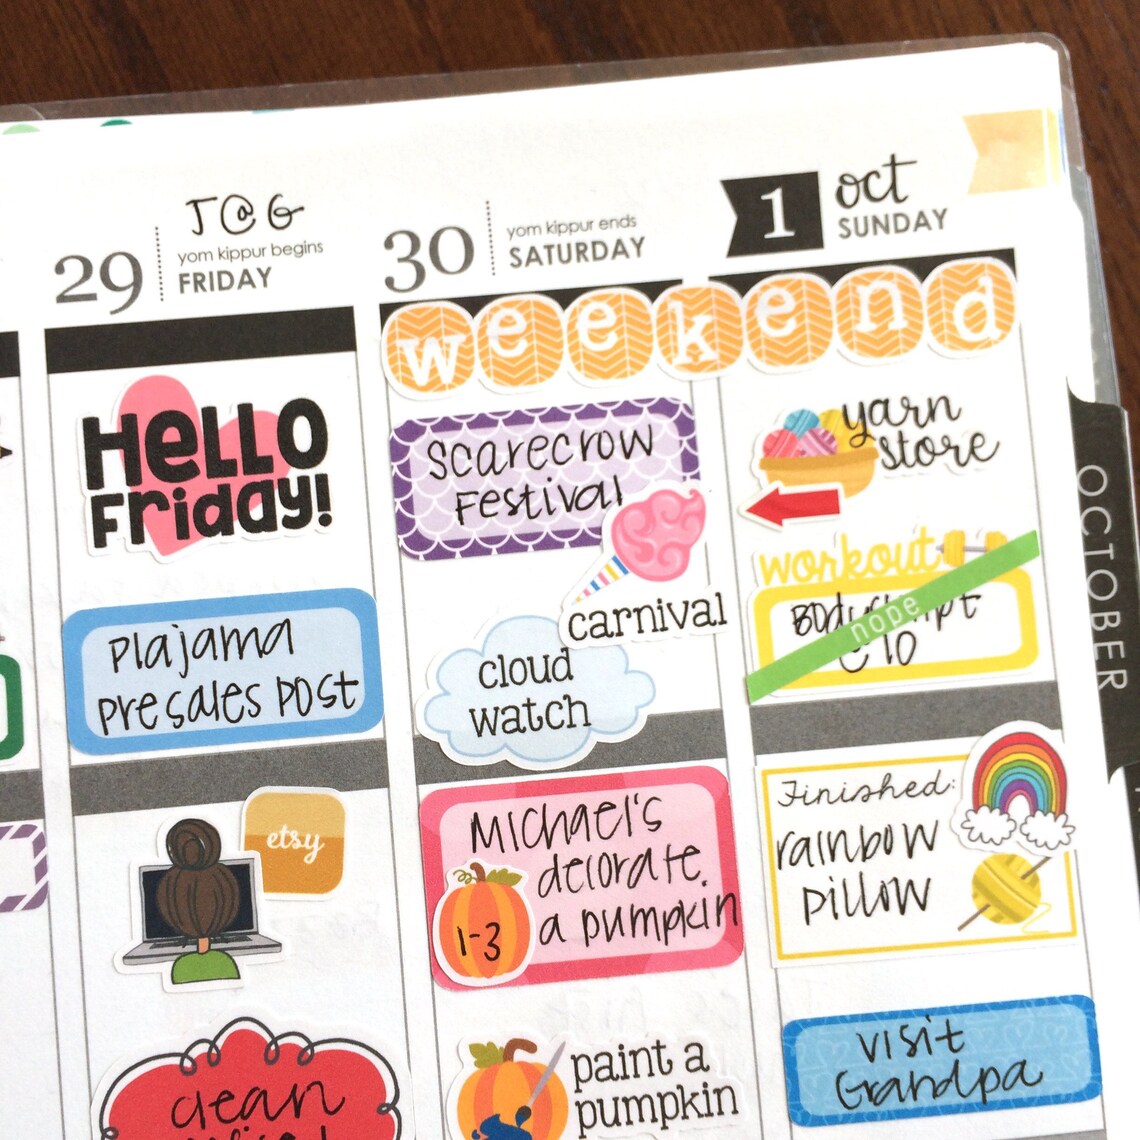 J@G
29
yom kippur begins
FRIDAY
HELLO
Friday!
Plajama
presales post
etsy
clean
30
yom kippur ends
SATURDAY
weekend
Scarecrow
Festival
carnival
cloud
watch
Michael's
decorate
a pumpkin
1-3
paint a
pumpkin
1
oct
SUNDAY
yarn
store
workout
nope
Finished:
rainbow
pillow
visit
Grandpa
OCTOBER